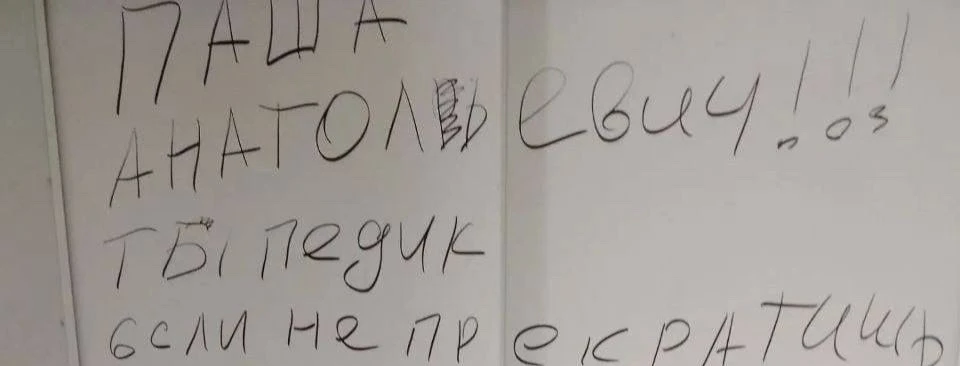 ПАША
АНАТОЛЬевич!!!
ТЫ педик
если не прекратишь